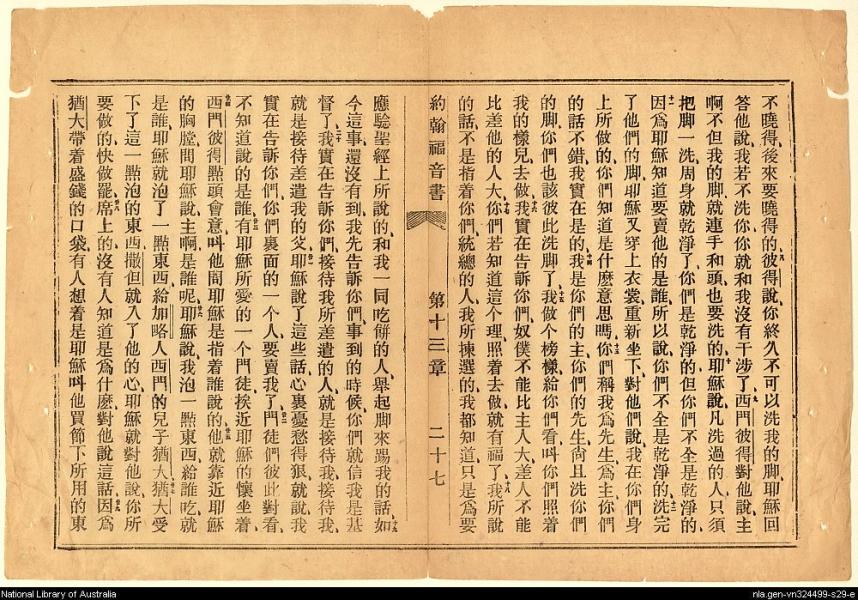 不曉得、後來要曉得的、彼得說、你終久不可以洗我的脚、耶穌回
答他說、我若不洗你、你就和我沒有干涉了、西門彼得對他說、主
啊、不但我的脚、就連手和頭也要洗的、耶穌說、凡洗過的人、只須
把脚一洗、周身就乾淨了、你們是乾淨的、但你們不全是乾淨的、
因爲耶穌知道要賣他的是誰、所以說、你們不全是乾淨的、洗完
了他們的脚、耶穌又穿上衣裳、重新坐下、對他們說、我在你們身
上所做的、你們知道是什麼意思嗎、你們稱我爲先生、爲主、你們
的話不錯、我實在是的、我是你們的主、你們的先生、尙且洗你們
的脚、你們也該彼此洗脚了、我做个榜樣、給你們看、叫你們照着
我的樣兒去做、我實在告訴你們、奴僕不能比主人大、差人不能
比差他的人大、你們若知道這个理、照着去做、就有福了、我所說
的話、不是指着你們統總的人、我所揀選的、我都知道、只是爲要
約翰福音書 第十三章 二十七
應驗聖經上所說的、和我一同吃餠的人、舉起脚來踢我的話、如
今這事還沒有到、我先告訴你們、事到的時候、你們就信我是基
督了、我實在告訴你們、接待我所差遣的人、就是接待我、接待我、
就是接待差遣我的父、耶穌說了這些話、心裏憂愁得狠、就說、我
實在告訴你們、你們裏面的一个人、要賣我了、門徒們彼此對看、
不知道說的是誰、有耶穌所愛的一个門徒、挨近耶穌的懷坐着、
西門彼得點頭會意、叫他問耶穌是指着誰說的、他就靠近耶穌
的胸膛、問耶穌說、主啊、是誰呢、耶穌說、我泡一點東西、給誰吃、就
是誰、耶穌就泡了一點東西、給加略人西門的兒子猶大、猶大受
下了這一點泡的東西、撒但就入了他的心、耶穌就對他說、你所
要做的、快做罷、席上的、沒有人知道是爲什麼對他說這話、因爲
猶大帶着盛錢的口袋、有人想着是耶穌叫他買節下所用的東
National Library of Australia
nla.gen-vn324499-s29-e